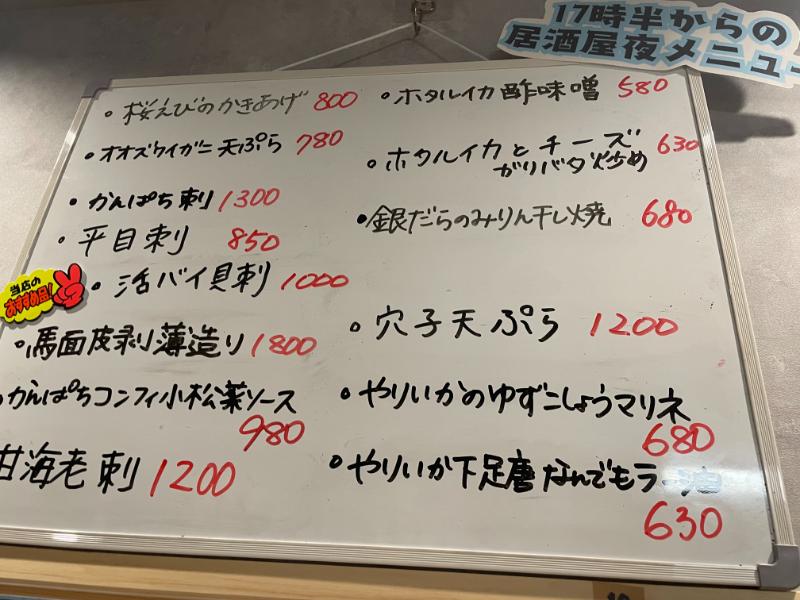 17時半からの
居酒屋夜メニュー
・桜えびのかきあげ 800
・オオズワイガニ天ぷら 780
・かんぱち刺 1300
・平目刺 850
当店の
おすすめ品!
・活バイ貝刺 1000
・馬面皮剥薄造り 1800
・かんぱちコンフィ小松菜ソース
980
甘海老刺 1200
・ホタルイカ酢味噌 580
・ホタルイカとチーズ 630
ガリバタ炒め
・銀だらのみりん干し焼 680
・穴子天ぷら 1200
・やりいかのゆずこしょうマリネ
680
・やりいか下足磨なんでもラー油
630